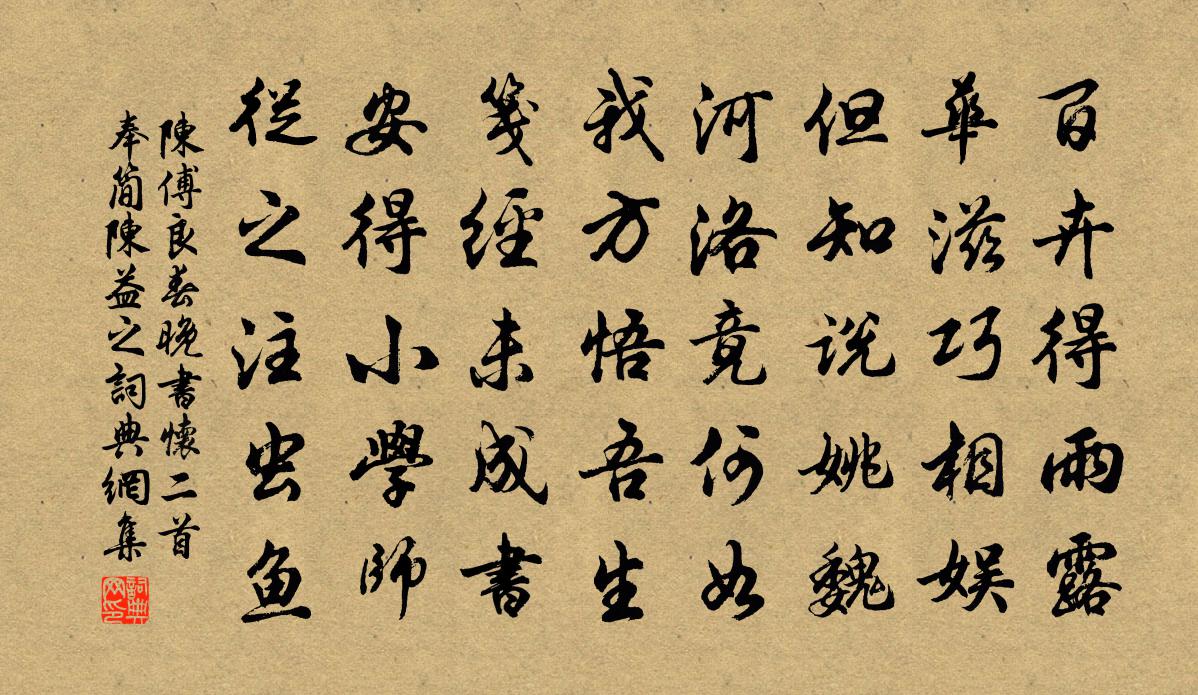 百卉得雨露
華滋巧相娱
但知説姚魏
河洛竟何如
我方悟吾生
箋經未成書
安得小學師
從之注虫鱼
陳傅良春晚書懷二首
奉簡陳益之詞典網集
詞典网印